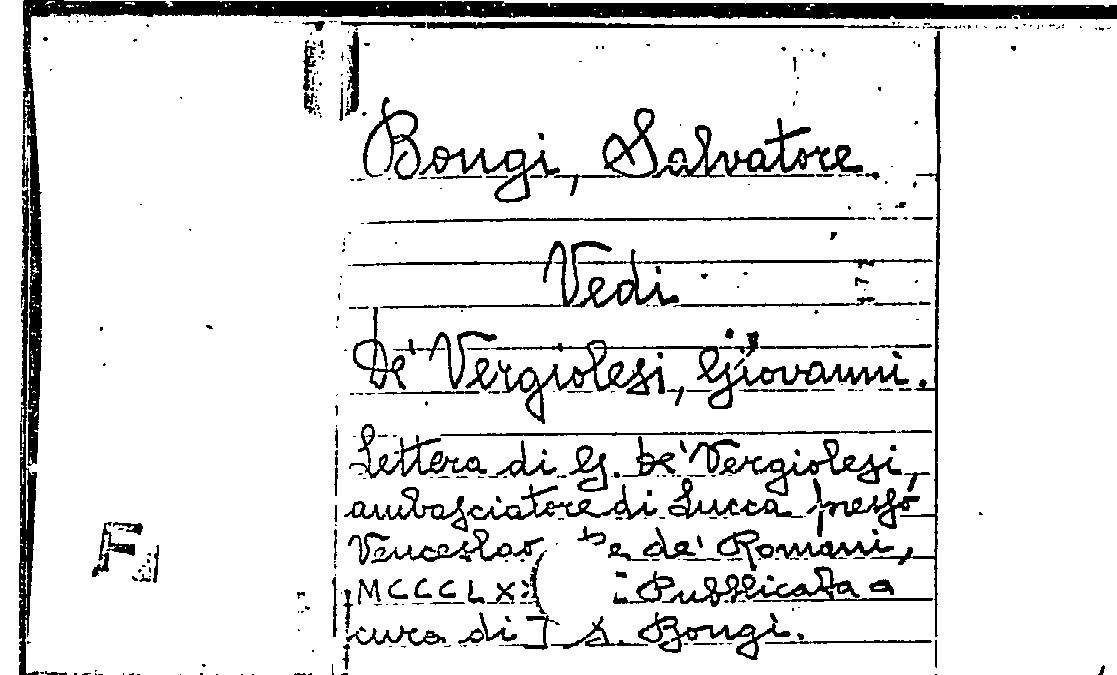 Bongi, Salvatore.
Vedi
De' Vergiolesi, Giovanni.
Lettera di G. De' Vergiolesi,
ambasciatore di Lucca presso
Venceslao de' Romani,
MCCCLX Pubblicata a
cura di] S. Bongi.
F